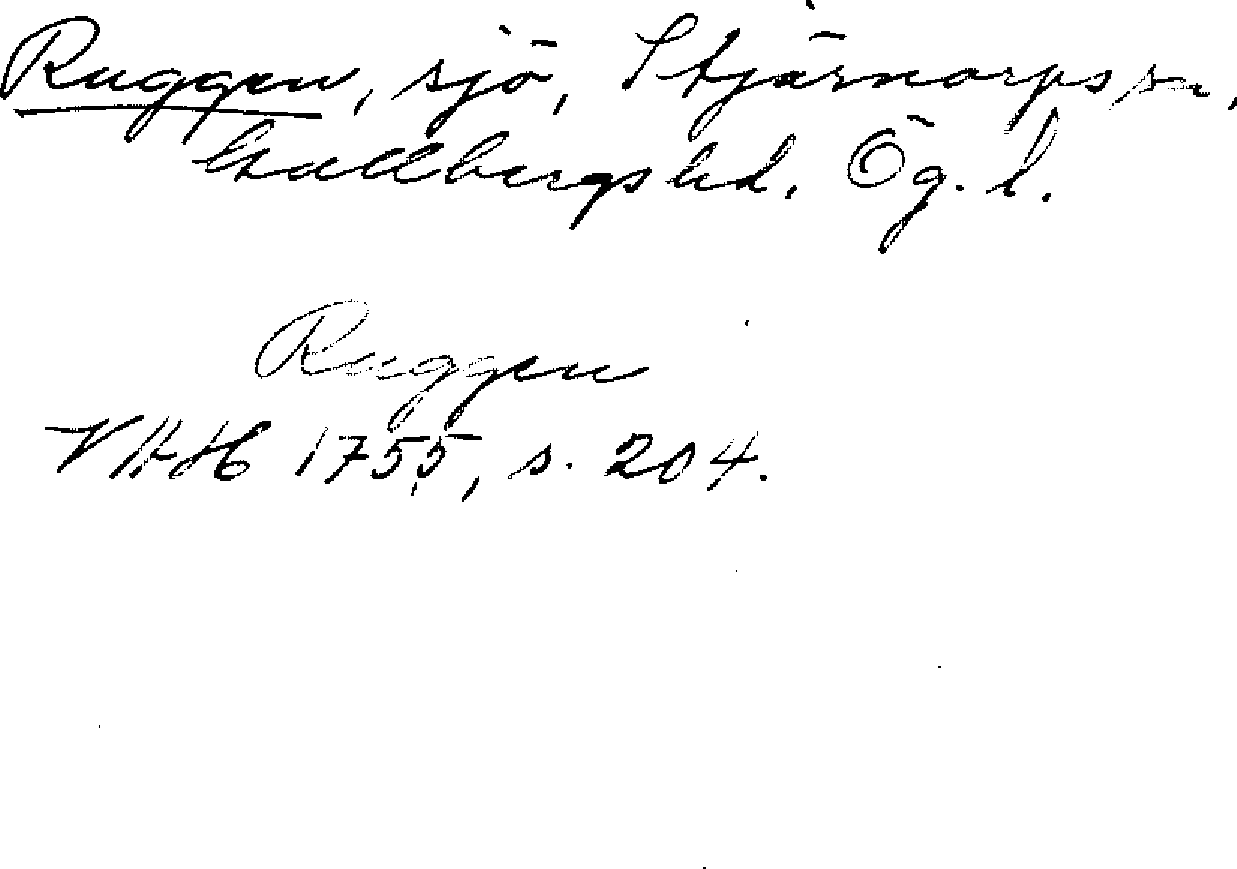 Ruggen, sjö, Stjärnorps sn,
Gullbergs hd. Ög. l.
Ruggen
VHAH 1755, s. 204.